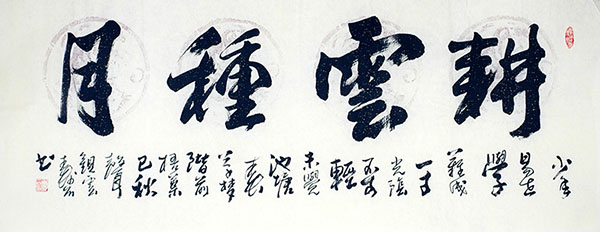 耕雲種月
少年
易老
學
難成
一寸
光陰
不可
輕
未覺
池塘
春
草夢
階前
梧葉
已秋
聲
觀雲
书